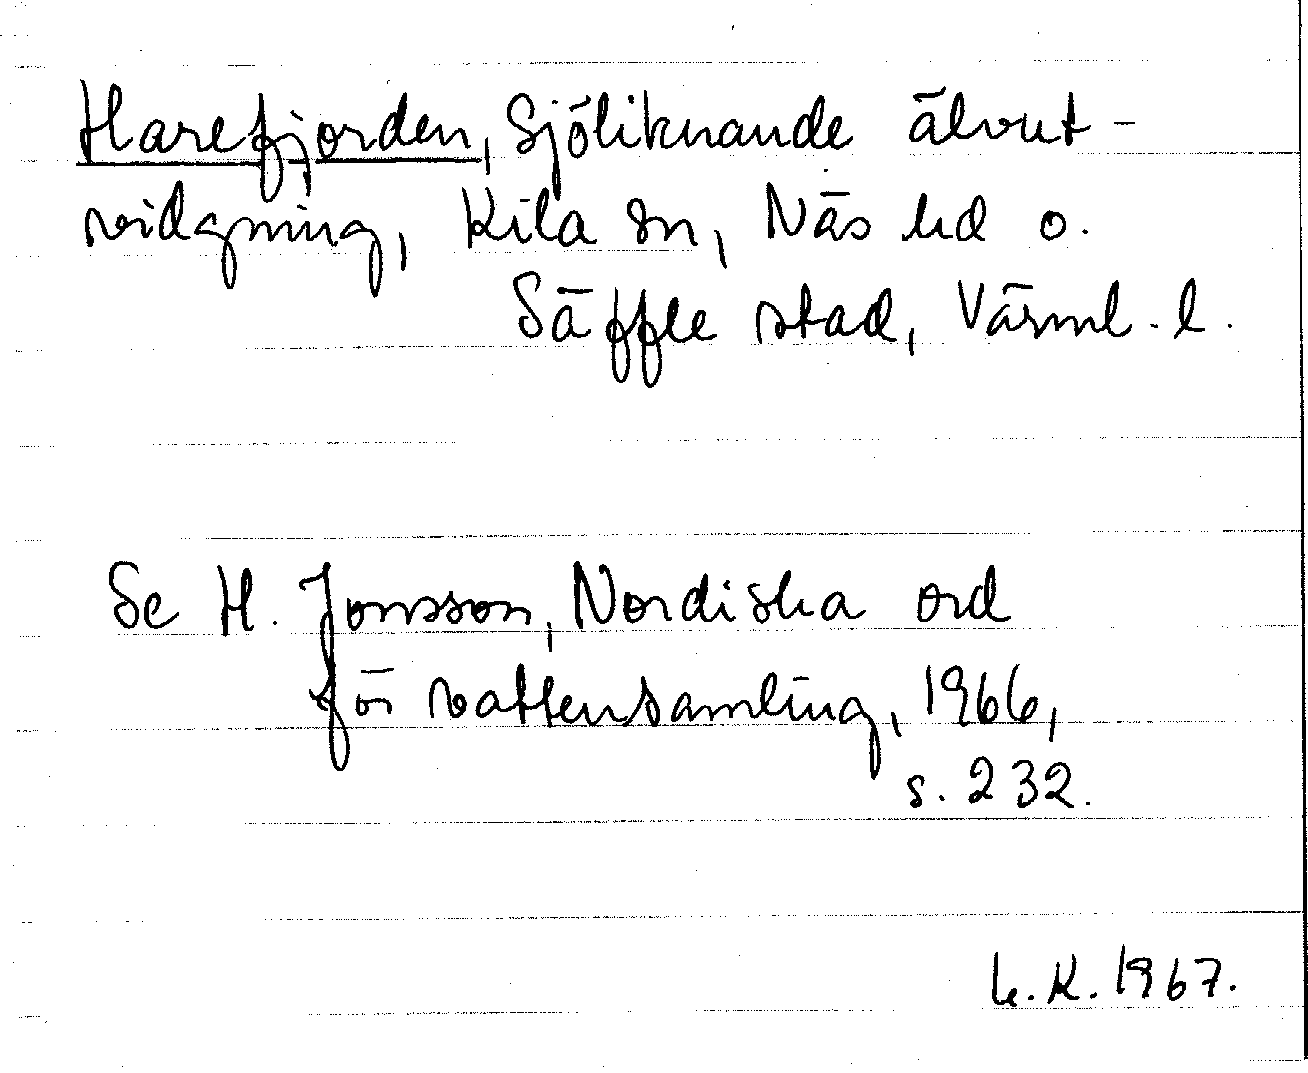 Harefjorden, sjöliknande älvut-
vidgning, Kila sn, Näs hd o.
Säffle stad, Värml. l.
Se H. Jonsson, Nordiska ord
för vattensamling, 1966,
s. 232.
K. 1967.